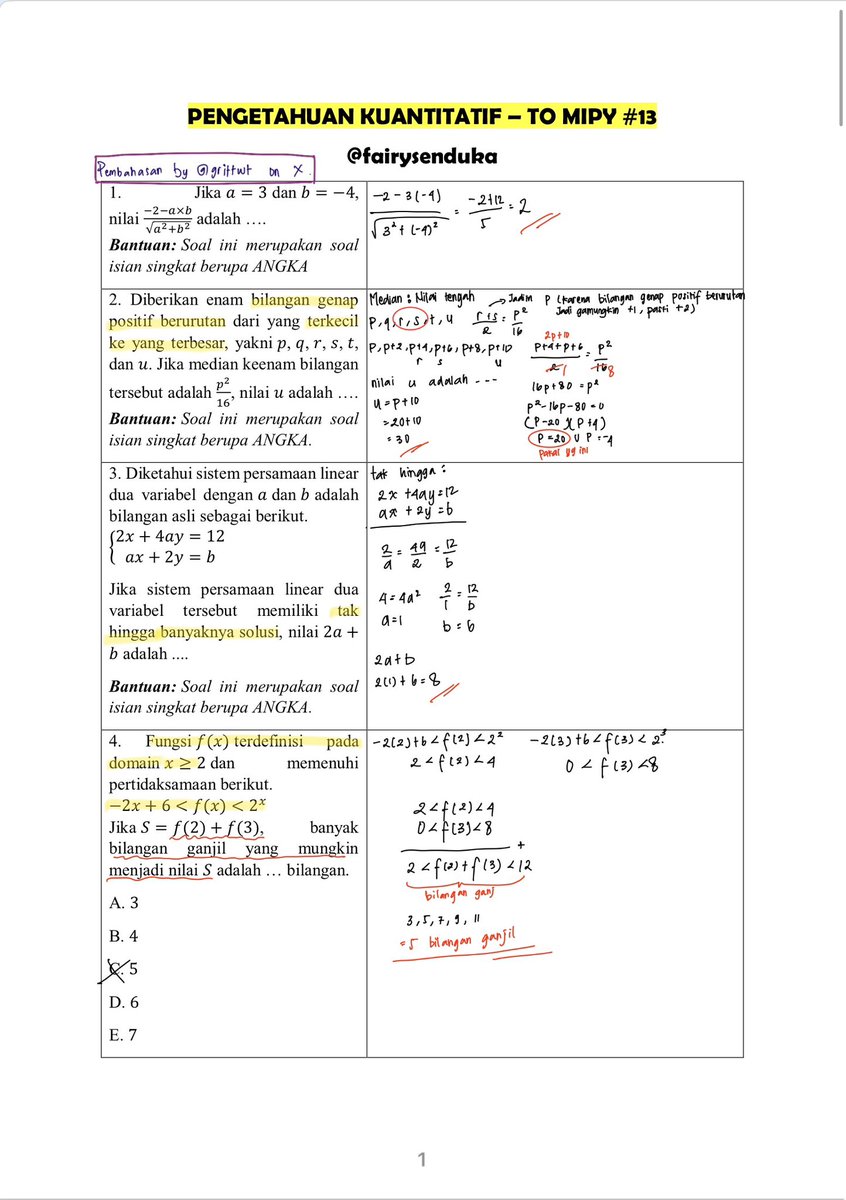 PENGETAHUAN KUANTITATIF – TO MIPY #13
@fairysenduka
Pembahasan by @griftwt on X.
1. Jika a = 3 dan b = −4,
nilai (−2−a×b)/√(a²+b²) adalah ….
Bantuan: Soal ini merupakan soal
isian singkat berupa ANGKA
(−2−3(−4))/√(3²+(−4)²) = (−2+12)/5 = 2
2. Diberikan enam bilangan genap
positif berurutan dari yang terkecil
ke yang terbesar, yakni p, q, r, s, t,
dan u. Jika median keenam bilangan
tersebut adalah p²/16, nilai u adalah ….
Bantuan: Soal ini merupakan soal
isian singkat berupa ANGKA.
Median : Nilai tengah
p, q, r, s, t, u
(r+s)/2 = p²/16
→ Jadiin p (karena bilangan genap positif berurutan
Jadi gamungkin +1, pasti +2)
p, p+2, p+4, p+6, p+8, p+10
r s u
nilai u adalah ---
u = p+10
= 20+10
= 30
2p+10
(p+4+p+6)/2 = p²/16
1 8
16p+80 = p²
p²−16p−80=0
(p−20)(p+4)
p=20 ∪ p=−4
pakai yg ini
3. Diketahui sistem persamaan linear
dua variabel dengan a dan b adalah
bilangan asli sebagai berikut.
{2x + 4ay = 12
ax + 2y = b
Jika sistem persamaan linear dua
variabel tersebut memiliki tak
hingga banyaknya solusi, nilai 2a +
b adalah ....
Bantuan: Soal ini merupakan soal
isian singkat berupa ANGKA.
tak hingga :
2x +4ay=12
ax + 2y =b
2/a = 4a/2 = 12/b
4=4a² 2/1 = 12/b
a=1 b=6
2a+b
2(1)+6=8
4. Fungsi f(x) terdefinisi pada
domain x ≥ 2 dan memenuhi
pertidaksamaan berikut.
−2x + 6 < f(x) < 2ˣ
Jika S = f(2) + f(3), banyak
bilangan ganjil yang mungkin
menjadi nilai S adalah … bilangan.
A. 3
B. 4
C. 5
D. 6
E. 7
−2(2)+6 < f(2) < 2²
2 < f(2) < 4
−2(3)+6 < f(3) < 2³
0 < f(3) < 8
2 < f(2) < 4
0 < f(3) < 8
+
2 < f(2) + f(3) < 12
bilangan ganj
3, 5, 7, 9, 11
=5 bilangan ganjil
1